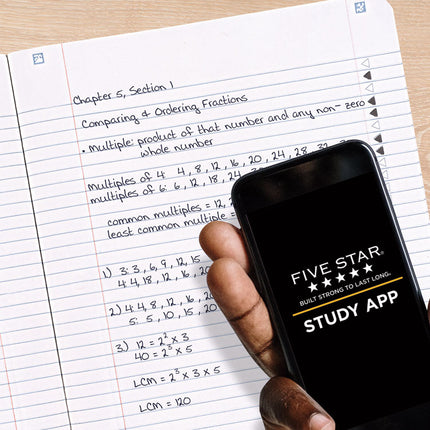 Chapter 5, Section 1
Comparing & Ordering Fractions
• Multiple: product of that number and any non-zero
whole number
multiples of 4: 4, 8, 12, 16, 20, 24, 28, 32,
multiples of 6: 6, 12, 18, 24,
common multiples = 12,
least common multiple =
1) 3: 3, 6, 9, 12, 15
4: 4, 8, 12, 16, 20
2) 4: 4, 8, 12, 16, 20
5: 5, 10, 15, 20
3) 12 = 2² × 3
40 = 2³ × 5
LCM = 2³ × 3 × 5
LCM = 120
FIVE STAR®
★★★★★
BUILT STRONG TO LAST LONG™
STUDY APP